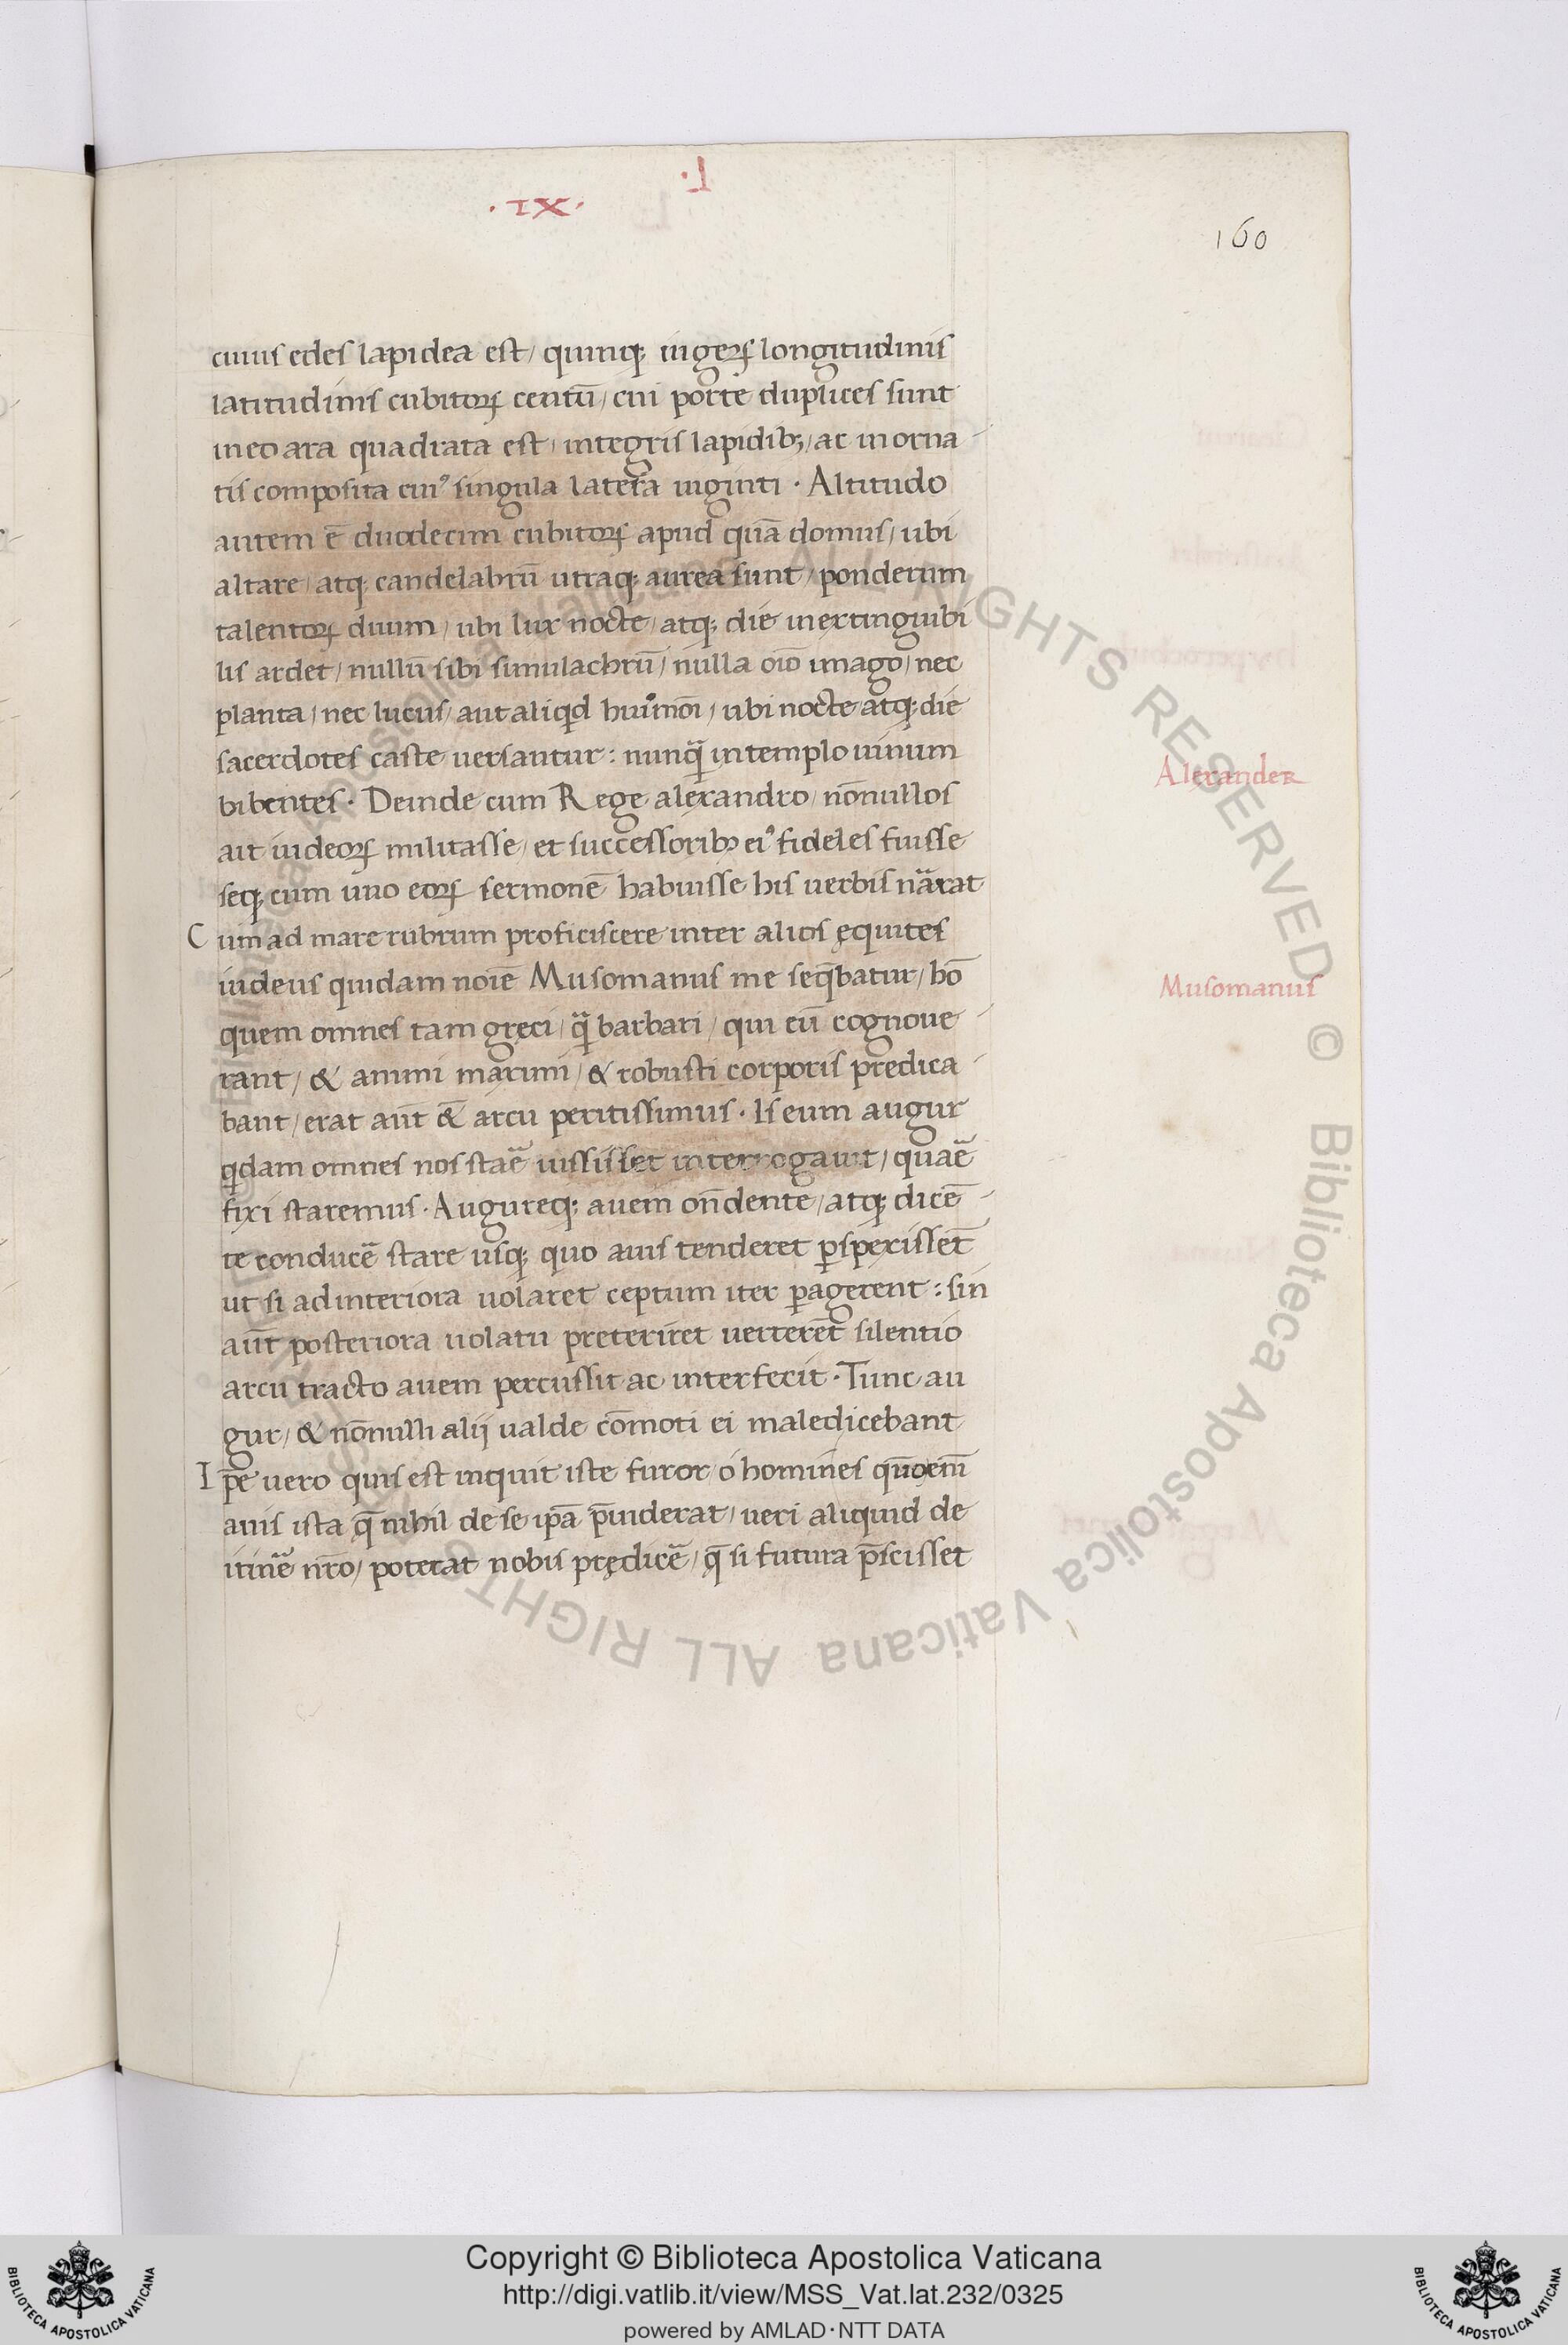 .L
.IX.
160
cuius edes lapidea est/ quinq; iugeꝝ longitudinis
latitudinis cubitoꝝ centū/ cui porte duplices sunt
in eo ara quadrata est/ integris lapidibꝫ/ ac inorna-
tis composita cuiꝰ singula latera uiginti · Altitudo
autem ē duodecim cubitoꝝ apud quā domus/ ubi
altare/ atq; candelabrū utraq; aurea sunt/ ponderum
talentoꝝ duum/ ubi lux nocte/ atq; die inextinguibi
lis ardet/ nullū sibi simulachrū/ nulla oīo imago/ nec
planta/ nec lucus/ aut aliqd huiꝰmōi/ ubi nocte atq; die
sacerdotes caste uersantur: nunq̄ in templo uinum
bibentes · Deinde cum Rege alexandro/ nōnullos
ait iudeoꝝ militasse/ et successoribꝫ eiꝰ fideles fuisse
seq; cum uno eoꝝ sermonē habuisse his uerbis nārat
Cum ad mare rubrum proficiscere inter alios ęquites
iudeus quidam noīe Musomanus me seq̄batur/ hō
quem omnes tam gręci/ q̄ barbari/ qui eū cognoue-
rant/ & animi maximi/ & robusti corporis predica-
bant/ erat aūt & arcu peritissimus · Is eum augur
qdam omnes nos staē iussisset interrogauit/ quaē
fixi staremus · Augureq; auem oñdente/ atq; dicē-
te conducē stare usq; quo auis tenderet ꝑspexissēt
ut si ad interiora uolaret ceptum iter ꝑagerent: sin
aūt posteriora uolatu preteriret uerterēt silentio
arcu tracto auem percussit ac interfecit · Tunc au
gur/ & nōnulli alij ualde cōmoti ei maledicebant
Ip̄e uero quis est inquit iste furor/ o homines qūo eīm
auis ista q̄ nihil de se ip̄a p̄uiderat/ ueri aliquid de
itinē nr̄o/ poterat nobis prędicē/ q̄ si futura p̄scisset
Alexander
Musomanus
Copyright © Biblioteca Apostolica Vaticana
http://digi.vatlib.it/view/MSS_Vat.lat.232/0325
powered by AMLAD·NTT DATA